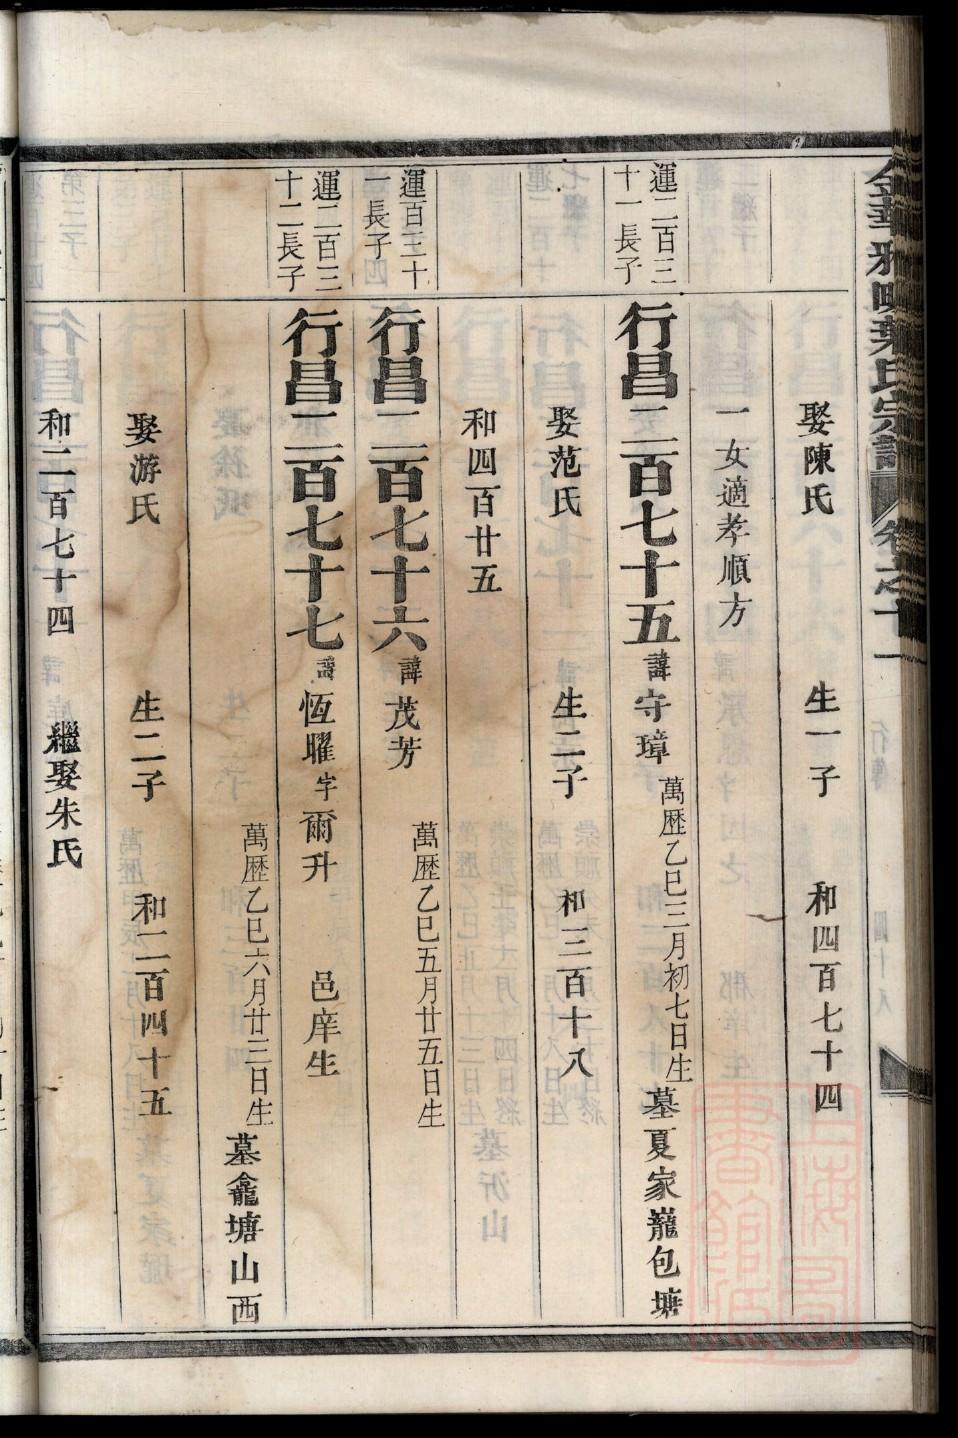 金華雅畈葉氏宗譜 卷之十一 行傳 四十八
娶陳氏 生一子 和四百七十四
一女適孝順方
運二百三十一長子
行昌二百七十五 諱守璋 萬歷乙巳三月初七日生 墓夏家巃包塘
娶范氏 生二子 和三百十八
和四百廿五
運百三十一長子
行昌二百七十六 諱茂芳 萬歷乙巳五月廿五日生
運二百三十二長子
行昌二百七十七 諱恆曜 字爾升 邑庠生
萬歷乙巳六月廿三日生 墓龕塘山西
娶游氏 生二子 和二百四十五
和二百七十四 繼娶朱氏
上海圖書館藏